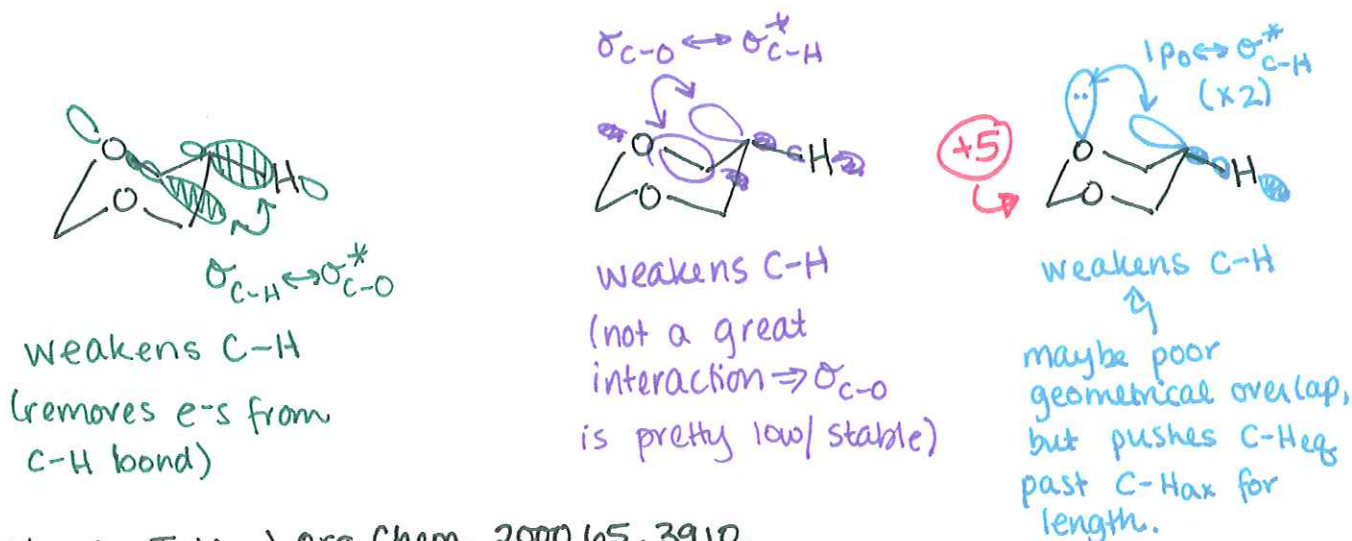 O
O
H
σC-H ↔ σ*C-O
weakens C-H
(removes e-s from
C-H bond)
σC-O ↔ σ*C-H
O
O
H
weakens C-H
(not a great
interaction ⇒ σC-O
is pretty low/stable)
+5
lpO ↔ σ*C-H
(x2)
O
O
H
weakens C-H
maybe poor
geometrical overlap,
but pushes C-Heq
past C-Hax for
length.
J. Org. Chem. 2000, 65, 3910.